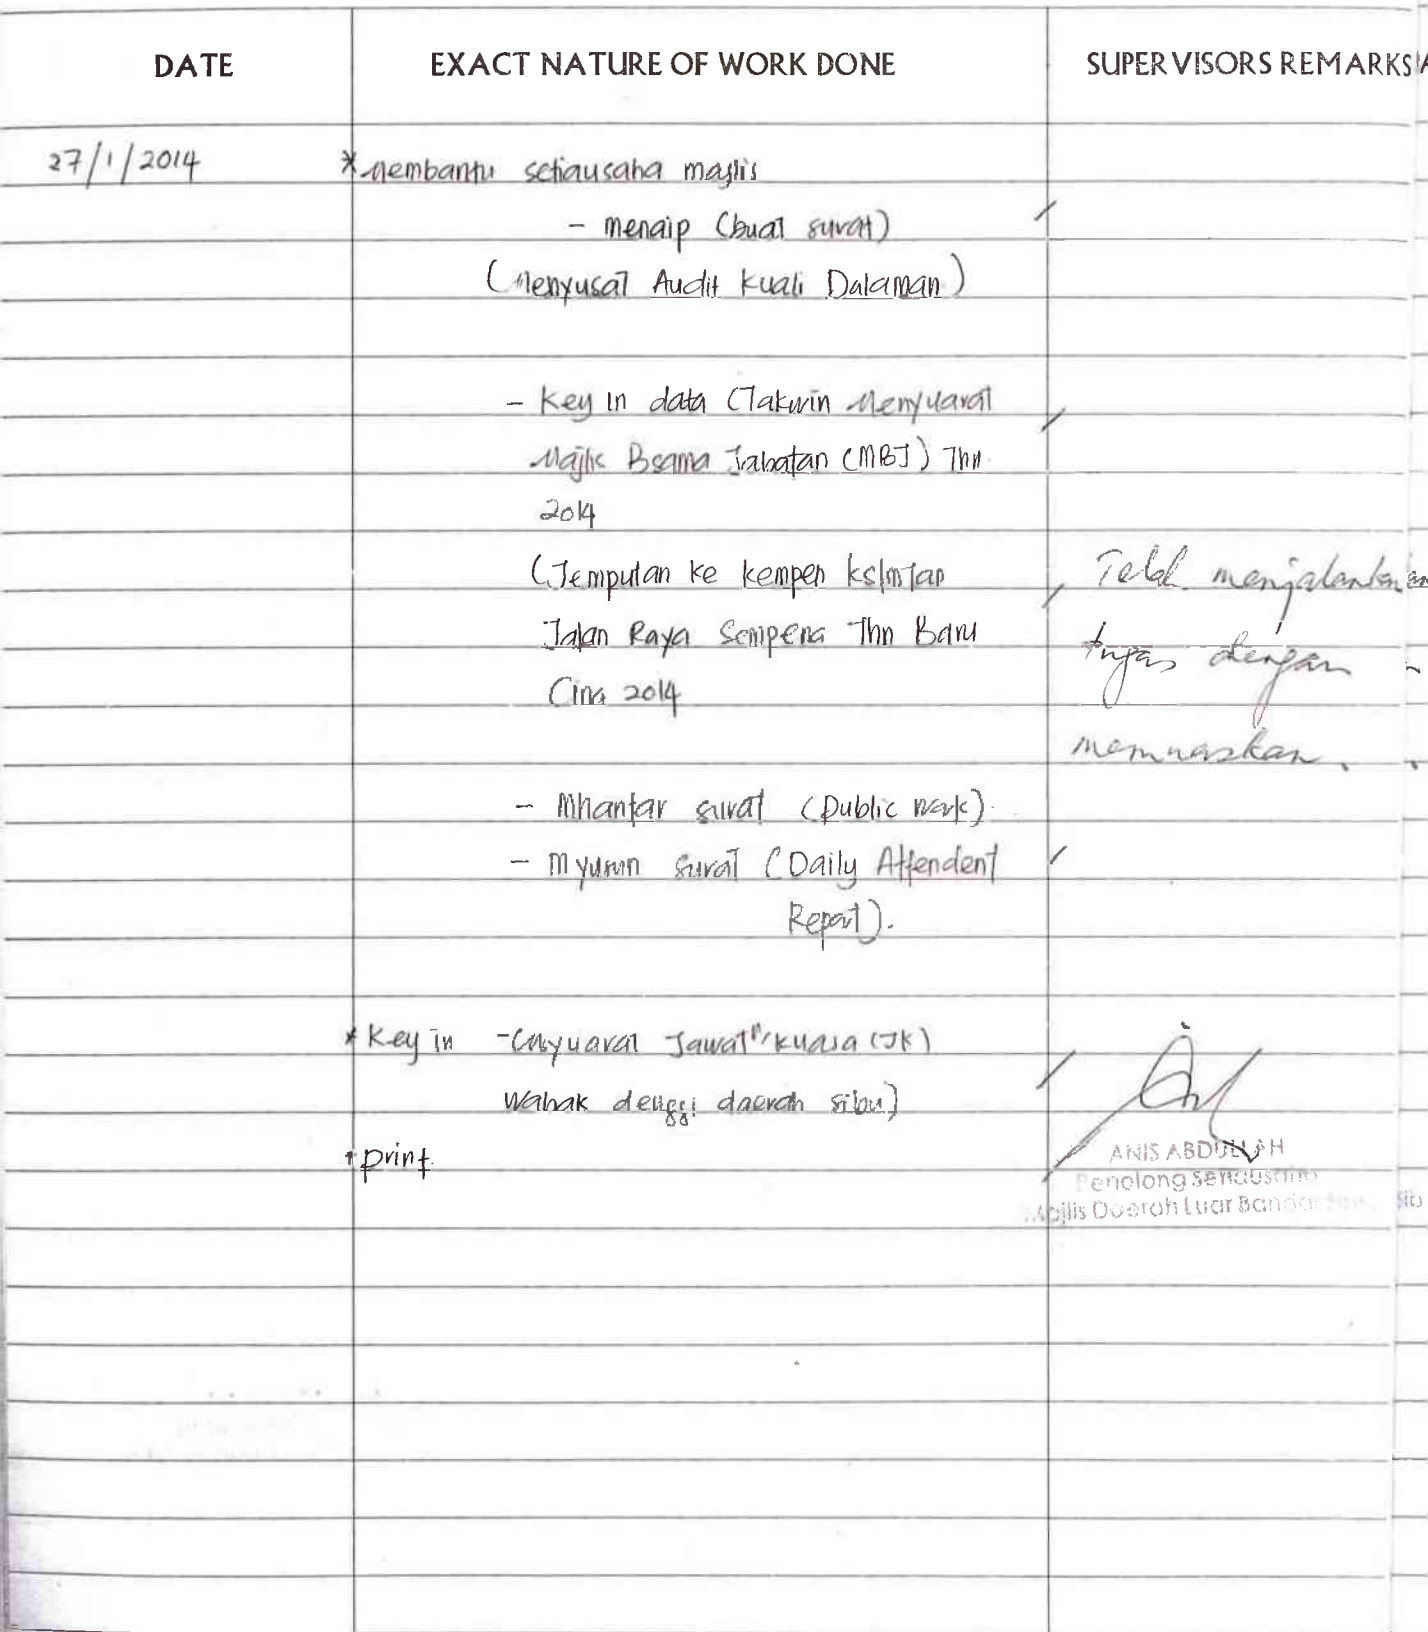 DATE EXACT NATURE OF WORK DONE SUPERVISORS REMARKS
27/1/2014 *Membantu setiausaha majlis
- menaip (buat surat)
(Menyusat Audit Kuali Dalaman)
- Key in data (Takwin Menyuarat
Majlis Bsama Jabatan (MBJ) Thn
2014
(Jemputan ke kempen kslmtan
Jalan Raya Sempena Thn Baru
Cina 2014
Telah menjalankan
tugas dengan
memuaskan.
- Mhantar surat (public work)
- Myusun surat (Daily Attendent
Report).
* Key in - Jawatn/kuasa (JK)
Wabak denggi daerah sibu)
* print
ANIS ABDULLAH
Penolong Setiausaha
Majlis Daerah Luar Bandar